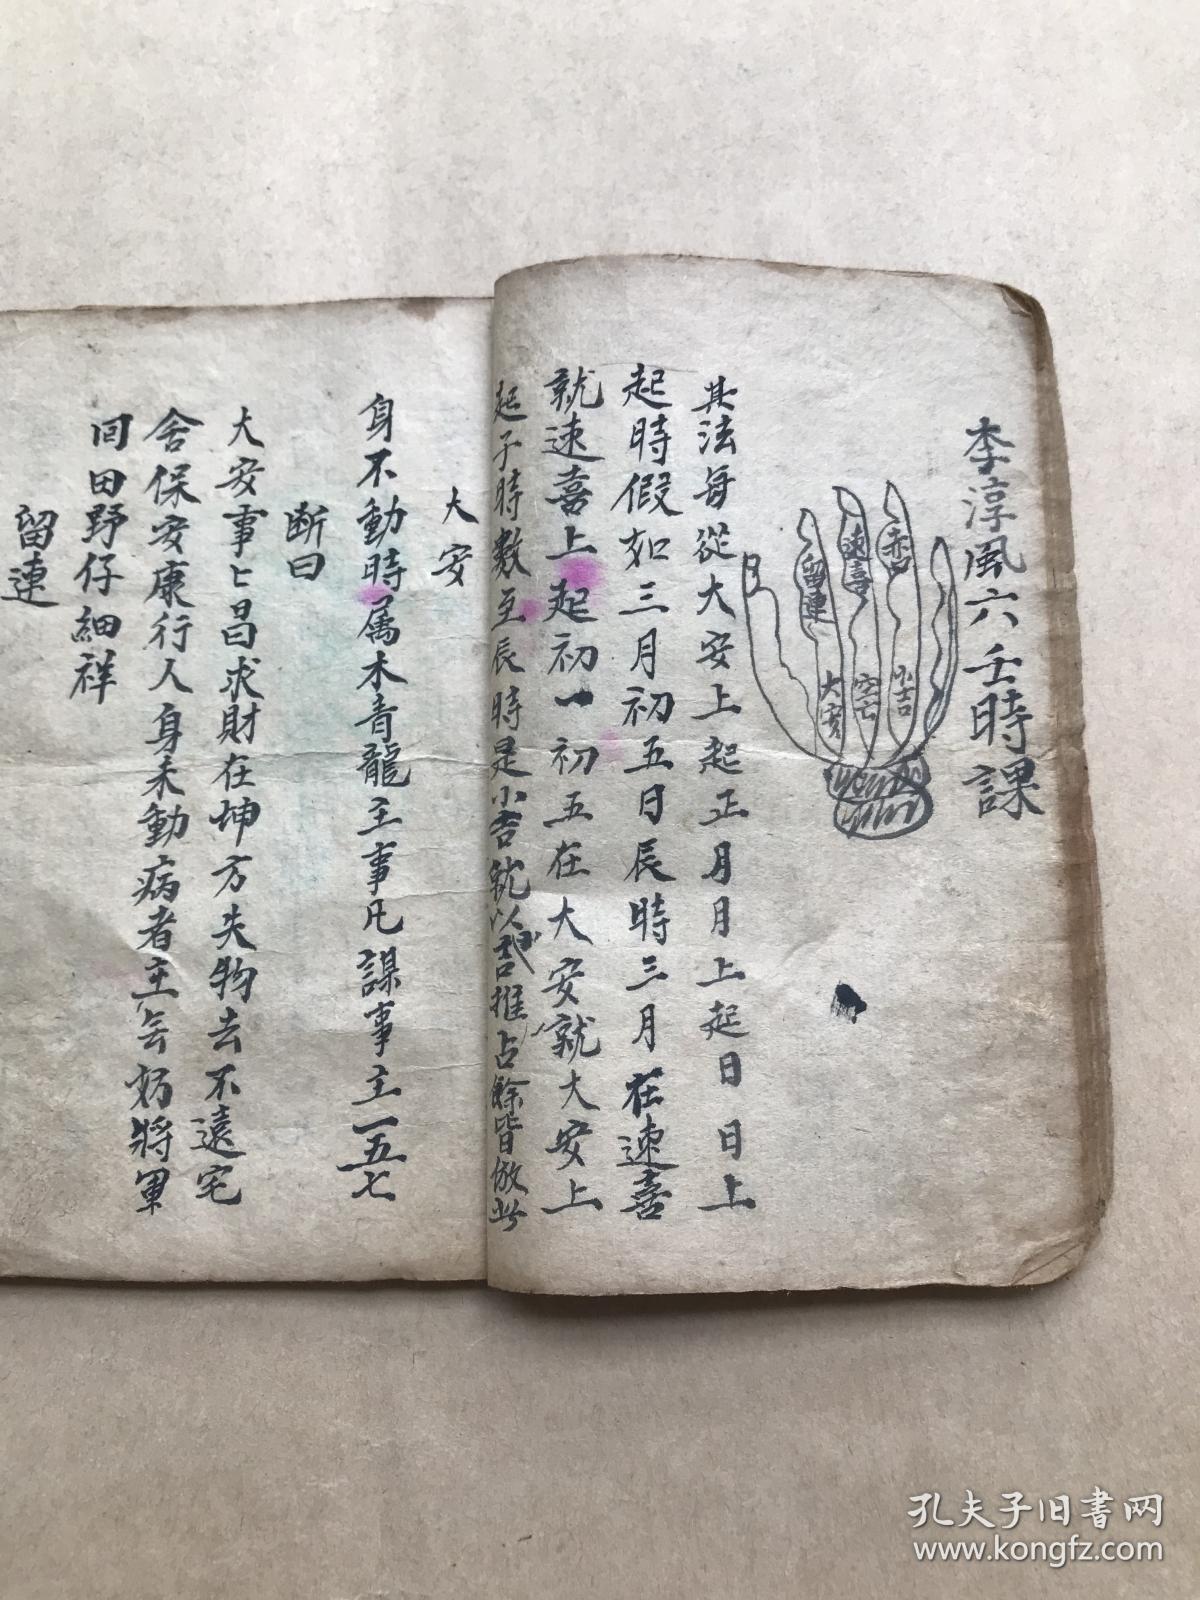 李淳風六壬時課
赤口
速喜
留連
小吉
空亡
大安
其法每從大安上起正月月上起日日上
起時假如三月初五日辰時三月在速喜
就速喜上起初一初五在大安就大安上
起子時数至辰時是小吉就以推占餘皆倣此
大安
身不動時属木青龍主事凡謀事主一五七
断曰
大安事〻昌求財在坤方失物去不遠宅
舍保安康行人身未動病者主無妨將軍
回田野仔細祥
留連
孔夫子旧書网
www.kongfz.com